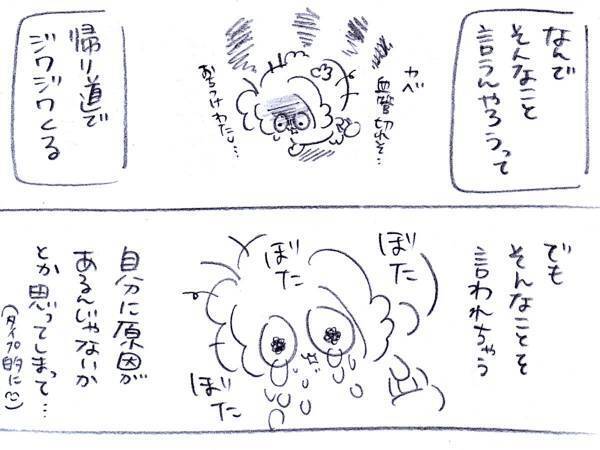 なんで
そんなこと
言うんやろうって
カベ
血管切れそ…
おちつけわたし…
帰り道で
ジワジワくる
でも
そんなことを
言われちゃう
ぼた
ぼた
ぼた
自分に原因が
あるんじゃないか
とか思ってしまって…
(タイプ的に)